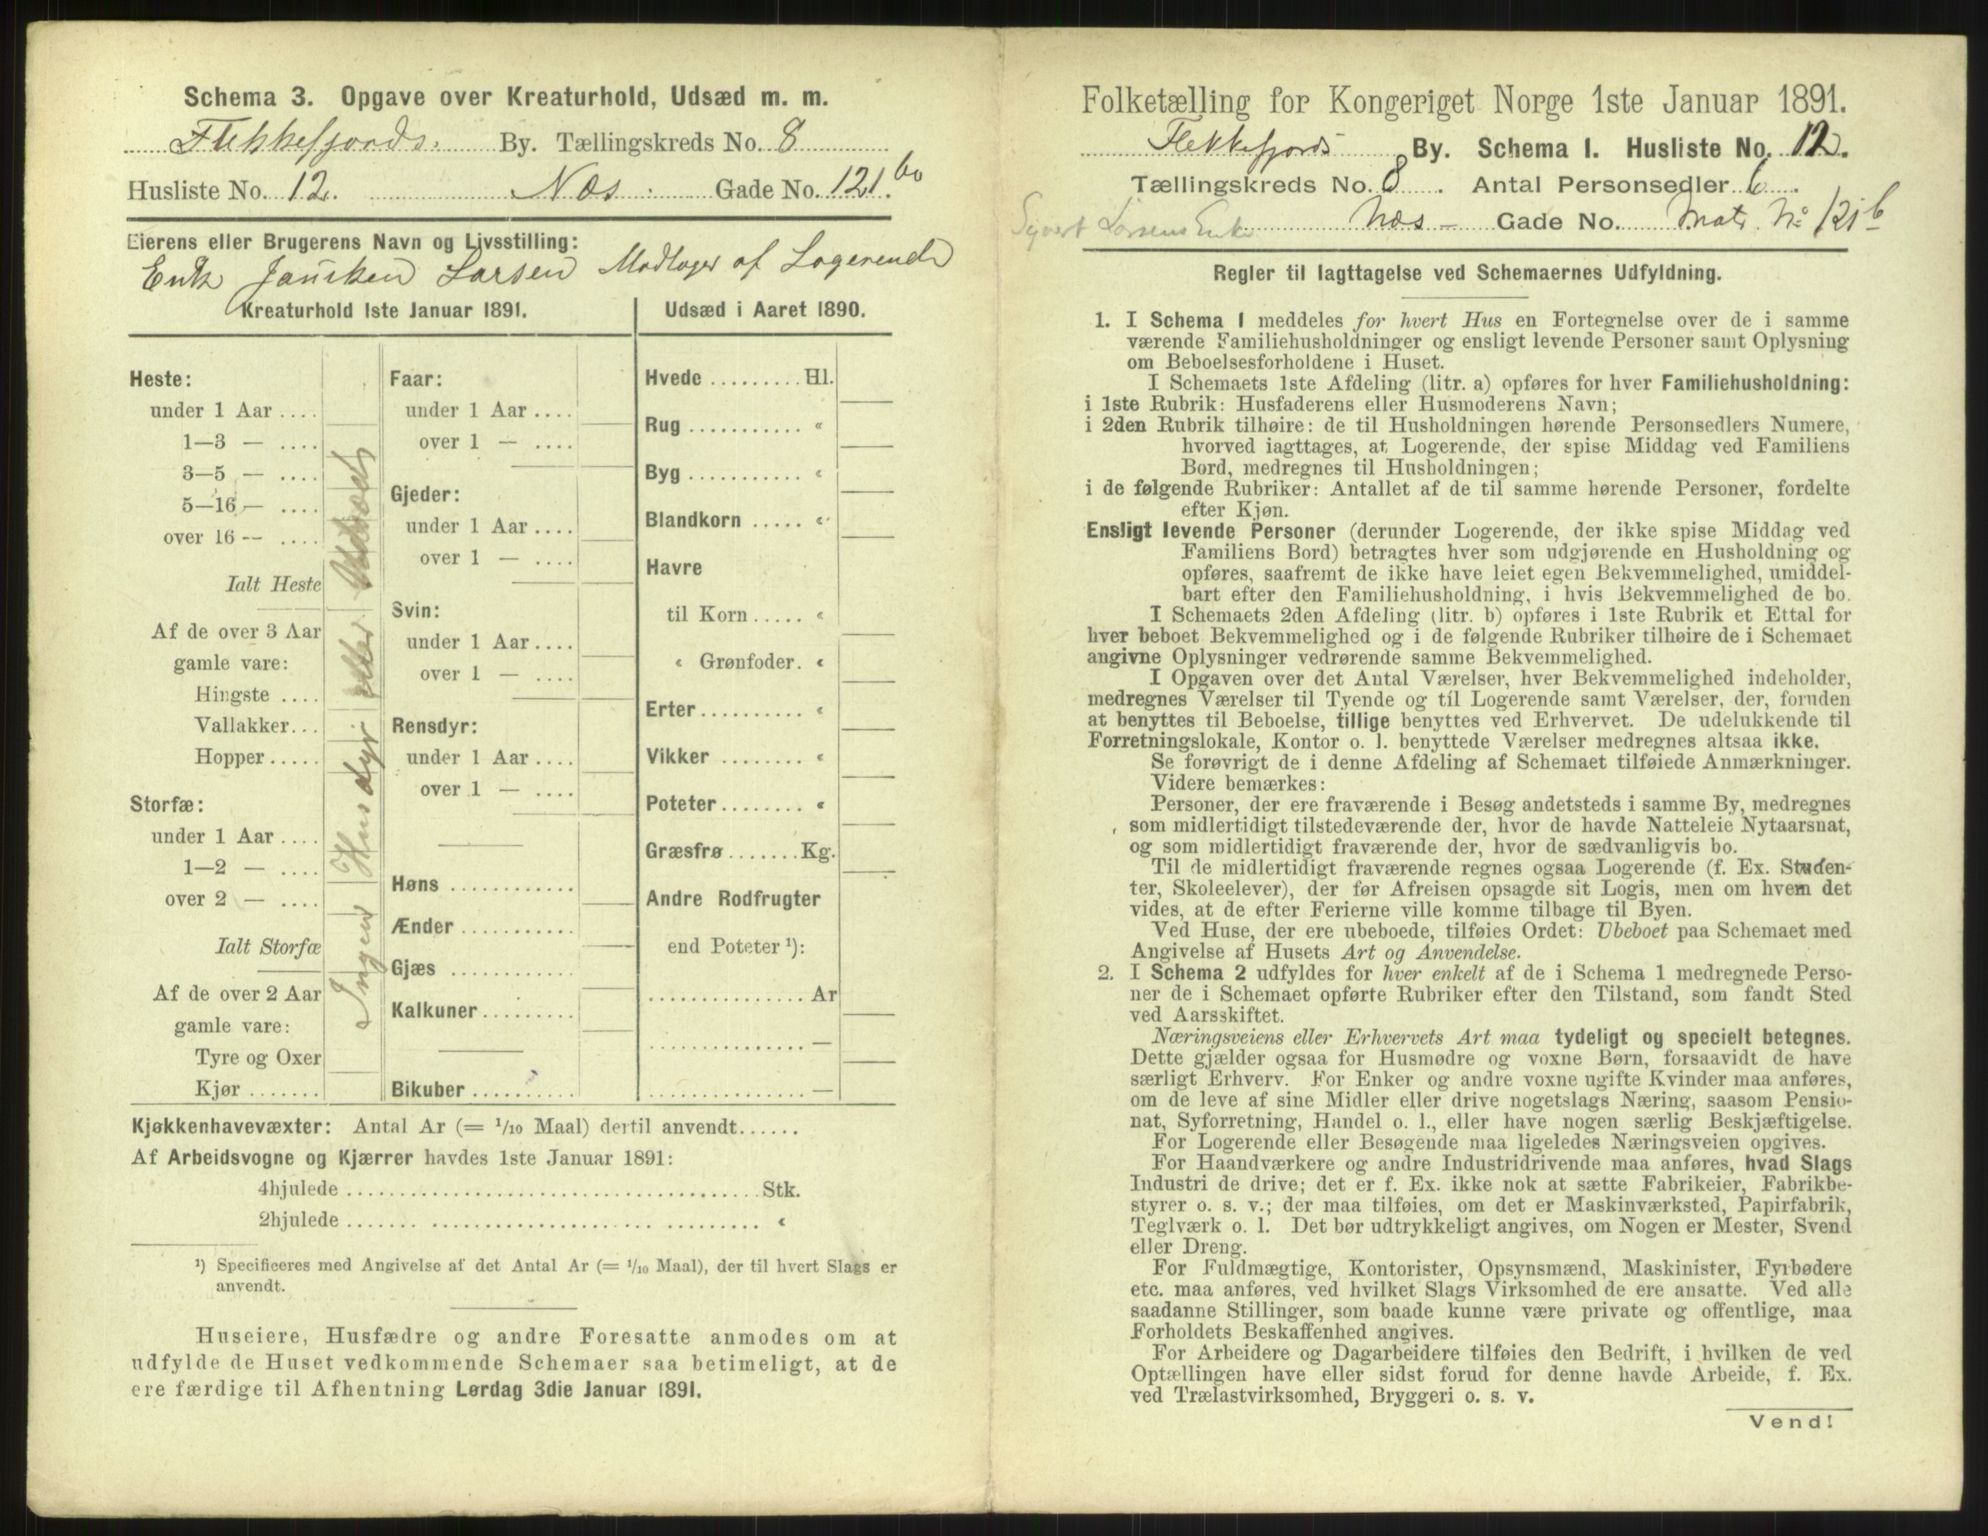 Schema 3. Opgave over Kreaturhold, Udsæd m. m.
Flekkefjords By. Tællingskreds No. 8
Husliste No. 12. Næs. Gade No. 121 b
Eierens eller Brugerens Navn og Livsstilling:
Enk Larsen Modtager af Logerende
Kreaturhold 1ste Januar 1891.
Heste:
under 1 Aar....
1—3 — ....
3—5 — ....
5—16 — ....
over 16 -- ....
Ialt Heste
Af de over 3 Aar
gamle vare:
Hingste ....
Vallakker...
Hopper.....
Storfæ:
under 1 Aar....
1—2 — ....
over 2 — ....
Ialt Storfæ
Af de over 2 Aar
gamle vare:
Tyre og Oxer
Kjør.......
Ingen Husdyr eller Udsæd
Faar:
under 1 Aar....
over 1 — ....
Gjeder:
under 1 Aar....
over 1 — ....
Svin:
under 1 Aar....
over 1 — ....
Rensdyr:
under 1 Aar....
over 1 — ....
Høns ..........
Ænder..........
Gjæs ..........
Kalkuner........
Bikuber .........
Udsæd i Aaret 1890.
Hvede ......... Hl.
Rug ........... «
Byg ........... «
Blandkorn ..... «
Havre
til Korn..... «
« Grønfoder. «
Erter.......... «
Vikker ........ «
Poteter........ «
Græsfrø.......Kg.
Andre Rodfrugter
end Poteter ¹):
...............Ar
............... —
............... —
Kjøkkenhavevæxter: Antal Ar (= 1/10 Maal) dertil anvendt......
Af Arbeidsvogne og Kjærrer havdes 1ste Januar 1891:
4hjulede ........................................Stk.
2hjulede ........................................ «
¹) Specificeres med Angivelse af det Antal Ar (= 1/10 Maal), der til hvert Slags er
anvendt.
Huseiere, Husfædre og andre Foresatte anmodes om at
udfylde de Huset vedkommende Schemaer saa betimeligt, at de
ere færdige til Afhentning Lørdag 3die Januar 1891.
Folketælling for Kongeriget Norge 1ste Januar 1891.
Flekkefjords By. Schema I. Husliste No. 12.
Tællingskreds No. 8. Antal Personsedler 6.
Syvert Larsens Enke Næs — Gade No. Mat. No 121 b
Regler til Iagttagelse ved Schemaernes Udfyldning.
1. I Schema 1 meddeles for hvert Hus en Fortegnelse over de i samme
værende Familiehusholdninger og ensligt levende Personer samt Oplysning
om Beboelsesforholdene i Huset.
I Schemaets 1ste Afdeling (litr. a) opføres for hver Familiehusholdning:
i 1ste Rubrik: Husfaderens eller Husmoderens Navn;
i 2den Rubrik tilhøire: de til Husholdningen hørende Personsedlers Numere,
hvorved iagttages, at Logerende, der spise Middag ved Familiens
Bord, medregnes til Husholdningen;
i de følgende Rubriker: Antallet af de til samme hørende Personer, fordelte
efter Kjøn.
Ensligt levende Personer (derunder Logerende, der ikke spise Middag ved
Familiens Bord) betragtes hver som udgjørende en Husholdning og
opføres, saafremt de ikke have leiet egen Bekvemmelighed, umiddel-
bart efter den Familiehusholdning, i hvis Bekvemmelighed de bo.
I Schemaets 2den Afdeling (litr. b) opføres i 1ste Rubrik et Ettal for
hver beboet Bekvemmelighed og i de følgende Rubriker tilhøire de i Schemaet
angivne Oplysninger vedrørende samme Bekvemmelighed.
I Opgaven over det Antal Værelser, hver Bekvemmelighed indeholder,
medregnes Værelser til Tyende og til Logerende samt Værelser, der, foruden
at benyttes til Beboelse, tillige benyttes ved Erhvervet. De udelukkende til
Forretningslokale, Kontor o. l. benyttede Værelser medregnes altsaa ikke.
Se forøvrigt de i denne Afdeling af Schemaet tilføiede Anmærkninger.
Videre bemærkes:
Personer, der ere fraværende i Besøg andetsteds i samme By, medregnes
som midlertidigt tilstedeværende der, hvor de havde Natteleie Nytaarsnat,
og som midlertidigt fraværende der, hvor de sædvanligvis bo.
Til de midlertidigt fraværende regnes ogsaa Logerende (f. Ex. Studen-
ter, Skoleelever), der før Afreisen opsagde sit Logis, men om hvem det
vides, at de efter Ferierne ville komme tilbage til Byen.
Ved Huse, der ere ubeboede, tilføies Ordet: Ubeboet paa Schemaet med
Angivelse af Husets Art og Anvendelse.
2. I Schema 2 udfyldes for hver enkelt af de i Schema 1 medregnede Perso-
ner de i Schemaet opførte Rubriker efter den Tilstand, som fandt Sted
ved Aarsskiftet.
Næringsveiens eller Erhvervets Art maa tydeligt og specielt betegnes.
Dette gjælder ogsaa for Husmødre og voxne Børn, forsaavidt de have
særligt Erhverv. For Enker og andre voxne ugifte Kvinder maa anføres,
om de leve af sine Midler eller drive nogetslags Næring, saasom Pensio-
nat, Syforretning, Handel o. l., eller have nogen særlig Beskjæftigelse.
For Logerende eller Besøgende maa ligeledes Næringsveien opgives.
For Haandværkere og andre Industridrivende maa anføres, hvad Slags
Industri de drive; det er f. Ex. ikke nok at sætte Fabrikeier, Fabrikbe-
styrer o. s. v.; der maa tilføies, om det er Maskinværksted, Papirfabrik,
Teglværk o. l. Det bør udtrykkeligt angives, om Nogen er Mester, Svend
eller Dreng.
For Fuldmægtige, Kontorister, Opsynsmænd, Maskinister, Fyrbødere
etc. maa anføres, ved hvilket Slags Virksomhed de ere ansatte. Ved alle
saadanne Stillinger, som baade kunne være private og offentlige, maa
Forholdets Beskaffenhed angives.
For Arbeidere og Dagarbeidere tilføies den Bedrift, i hvilken de ved
Optællingen have eller sidst forud for denne havde Arbeide, f. Ex.
ved Trælastvirksomhed, Bryggeri o. s. v.
Vend!